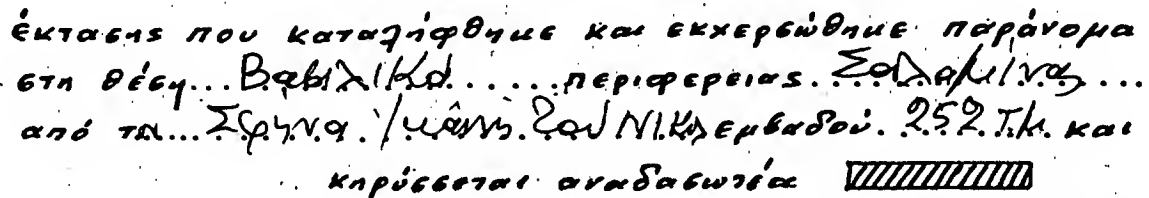 έκτασης που καταλήφθηκε και εκχερσώθηκε παράνομα
στη θέση... Βασιλικά...... περιφερειας. Σαλαμίνας...
από τη... Γιάννη. του Νικ. εμβαδού. 252 Τ.μ. και
κηρύσσεται αναδασωτέα